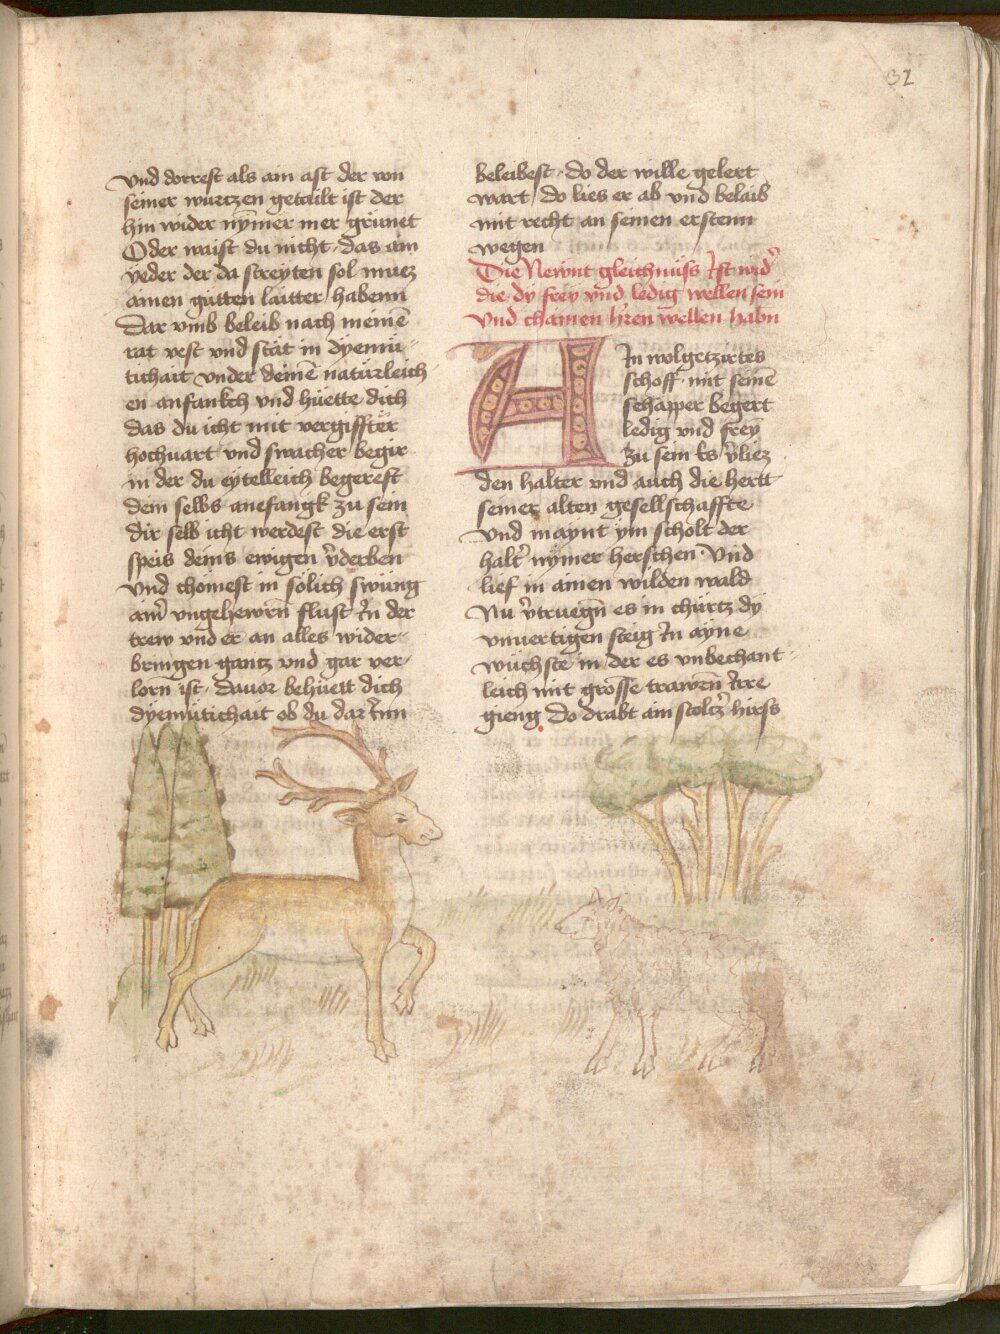 32
vnd dorrest als ain ast der von
seiner wurtzen getailt ist der
hin wider nȳmer mer grünet
Oder waist du nicht das ain
yeder der da streyten sol muez
ainen gütten laitter habenn
Dar vmb beleib nach meinē
rat vest vnd stät in dyemü
tichait vnder deinē natürleich
en anfankch vnd hüette dich
das du icht mit vergiffter
hochuart vnd swacher begir
in der du eytelleich begerest
dein selbs anefangk zu sein
dir selb icht werdest die erst
speis deins ewigen v̄derben
vnd chömest in sölich swüng
ain̄ vngehewrn̄ flust In der
trew vnd er an alles wider
bringen gantz vnd gar ver
lorn̄ ist Dauor behüett dich
dyemütichait ob du dar Inn
beleibest do der wille gelert
wart do lies er ab vnd belaib
mit recht an seinen erstenn
wegen
Die Newnt gleichnüss Ist wid̄
die dy frey vnd ledig wellen sein
Vnd chainen h̄ren wellen habn
AIn wolgetzirtes
schoff mit seinē
schapper begert
ledig vnd frey
zu sein Es v̄liez
den halter vnd auch die hertt
seiner alten gesellschaffte
vnd maynt ym scholt der
halt̄ nȳmer herschen Vnd
lief in ainen wilden wald
Nu v̄truegn̄ es in chürtz dy
vnuertigen steig In ayne
wüchste in der es vnbechant
leich mit grosse trawrn̄ Irre
gieng Do drabt ain stoltz̄ hirss